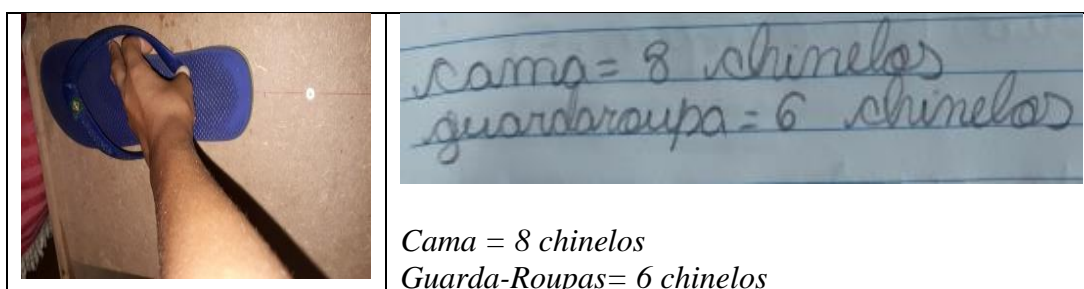 cama = 8 chinelos
guardaroupa = 6 chinelos
Cama = 8 chinelos
Guarda-Roupas= 6 chinelos